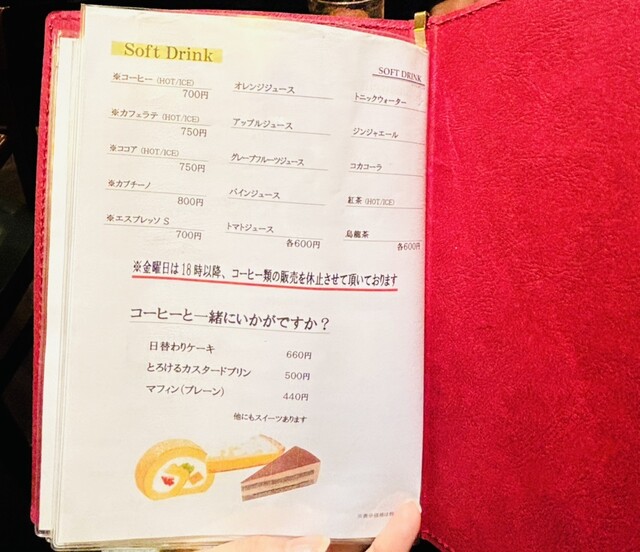 Soft Drink
SOFT DRINK
※コーヒー (HOT/ICE)
700円
オレンジジュース
トニックウォーター
※カフェラテ (HOT/ICE)
750円
アップルジュース
ジンジャエール
※ココア (HOT/ICE)
750円
グレープフルーツジュース
コカコーラ
※カプチーノ
800円
パインジュース
紅茶 (HOT/ICE)
※エスプレッソ S
700円
トマトジュース
各600円
烏龍茶
各600円
※金曜日は18時以降、コーヒー類の販売を休止させて頂いております
コーヒーと一緒にいかがですか？
日替わりケーキ 660円
とろけるカスタードプリン 500円
マフィン(プレーン) 440円
他にもスイーツあります